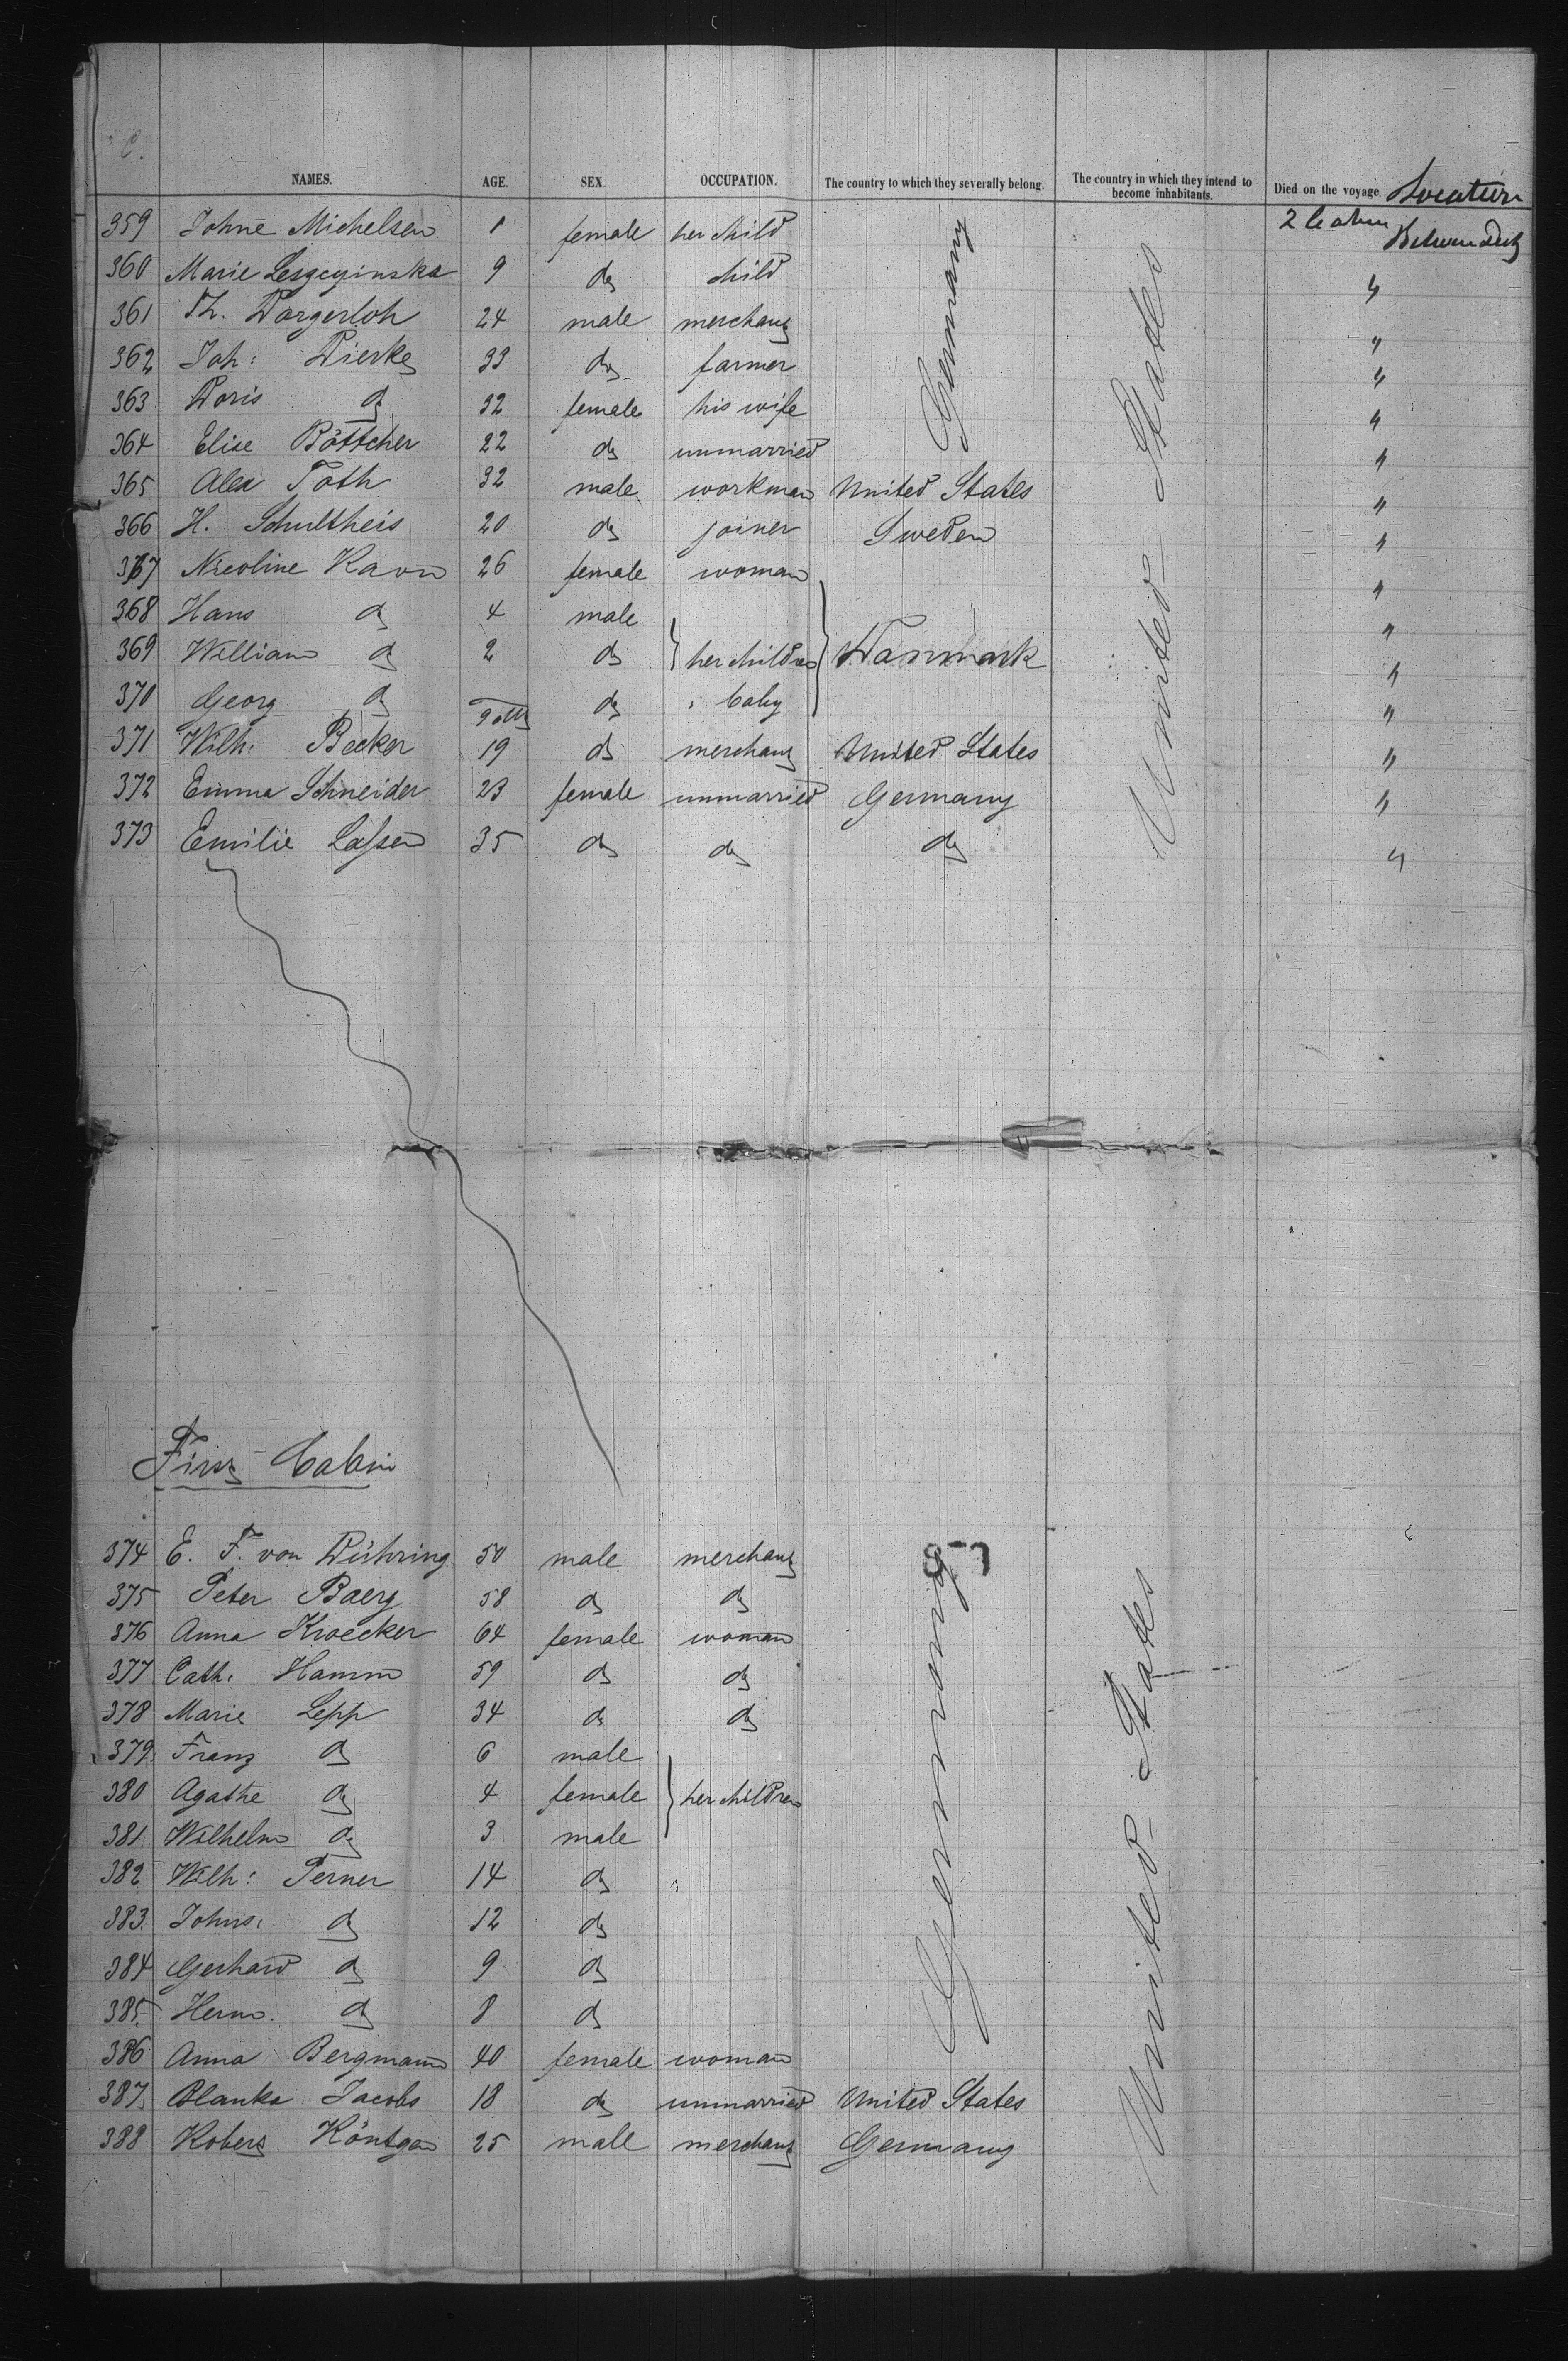 NAMES. AGE. SEX. OCCUPATION. The country to which they severally belong. The country in which they intend to become inhabitants. Died on the voyage. Location
359 Johne Michelsen 1 female her child 2 Cabin Between Deck
360 Marie Leszcyinska 9 do child "
361 Th. Dorgerloh 24 male merchant "
362 Joh: Dierks 33 do farmer "
363 Doris do 32 female his wife "
364 Elise Böttcher 22 do unmarried "
Germany
365 Alex Toth 32 male workman United States "
366 H. Schultheis 20 do joiner Sweden "
367 Nicoline Ravn 26 female woman "
368 Hans do 4 male "
369 William do 2 do her children Danmark "
370 Georg do 9 mth do baby "
371 Wilh: Becker 19 do merchant United States "
372 Emma Schneider 23 female unmarried Germany "
373 Emilie Lassen 35 do do do "
United States
First Cabin
374 E. F. von Dühring 50 male merchant
375 Peter Baerg 58 do do
376 Anna Kroecker 64 female woman
377 Cath: Hamm 59 do do
378 Marie Lepp 34 do do
379 Franz do 6 male
380 Agathe do 4 female her children
381 Wilhelm do 3 male
382 Wilh: Perner 14 do
383 Johns: do 12 do
384 Gerhard do 9 do
385 Herm. do 8 do
386 Anna Bergmann 40 female woman
Germany
387 Blanka Jacobs 18 do unmarried United States
388 Robert Röntgen 25 male merchant Germany
United States